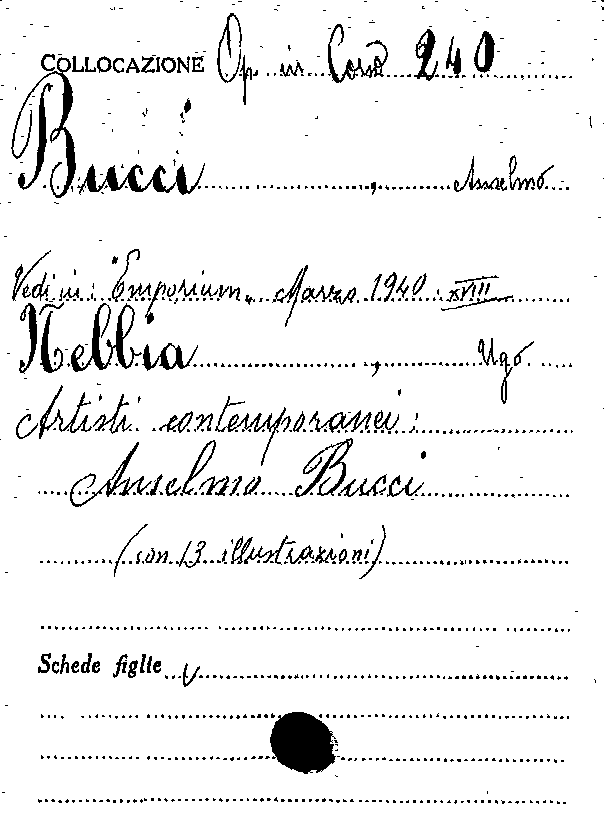 COLLOCAZIONE Op. in Corso 240
Bucci, Anselmo
Vedi in: "Emporium" Marzo 1940. XVIII
Nebbia, Ugo
Artisti contemporanei:
Anselmo Bucci
(con 13 illustrazioni)
Schede figlie V